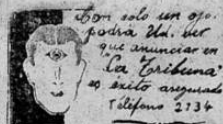 Con solo un ojo
podra Ud. ver
que anunciar en
"La Tribuna"
es éxito asegurado
Teléfono 2734